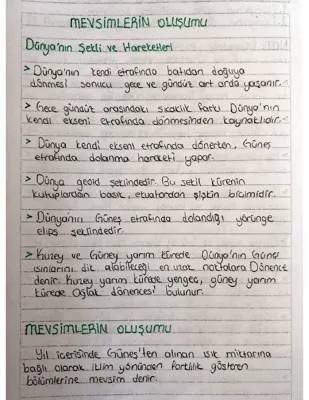 MEVSİMLERİN OLUŞUMU
Dünya'nın Şekli ve Hareketleri
> Dünya'nın kendi etrafında batıdan doğuya
dönmesi sonucu gece ve gündüz art arda yaşanır.
> Gece gündüz arasındaki sıcaklık farkı Dünya'nın
kendi ekseni etrafında dönmesinden kaynaklıdır.
> Dünya kendi ekseni etrafında dönerken, Güneş
etrafında dolanma hareketi yapar.
> Dünya geoid şeklindedir. Bu şekil kürenin
kutuplardan basık, ekvatordan şişkin biçimidir.
> Dünya'nın Güneş etrafında dolandığı yörünge
elips şeklindedir.
> Kuzey ve Güney yarım kürede Dünya'nın Güneş
ışınlarını dik alabileceği en uzak noktalara Dönence
denir. Kuzey yarım kürede yengeç, güney yarım
kürede Oğlak dönencesi bulunur.
MEVSİMLERİN OLUŞUMU
Yıl içerisinde Güneş'ten alınan ışık miktarına
bağlı olarak iklim yönünden farklılık gösteren
bölümlerine mevsim denir.